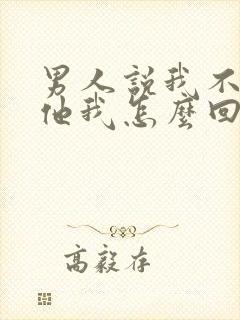 男人說我不
他我怎麼回
高毅存